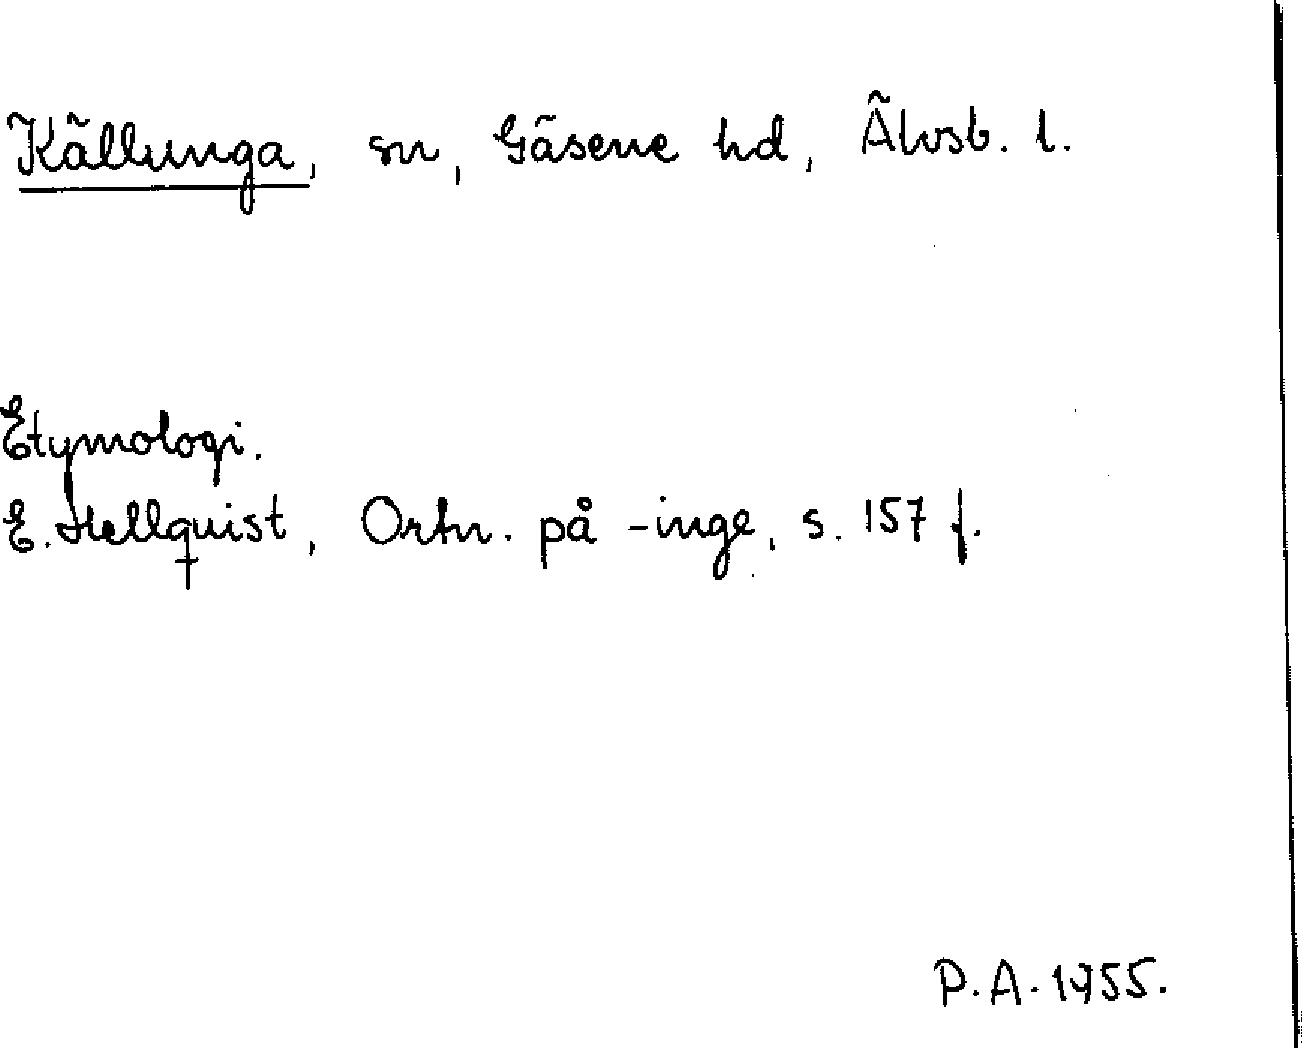 Källunga, sn, Gäsene hd, Älvsb. l.
Etymologi.
E. Hellquist, Ortn. på -inge, s. 157 f.
P.A. 1955.